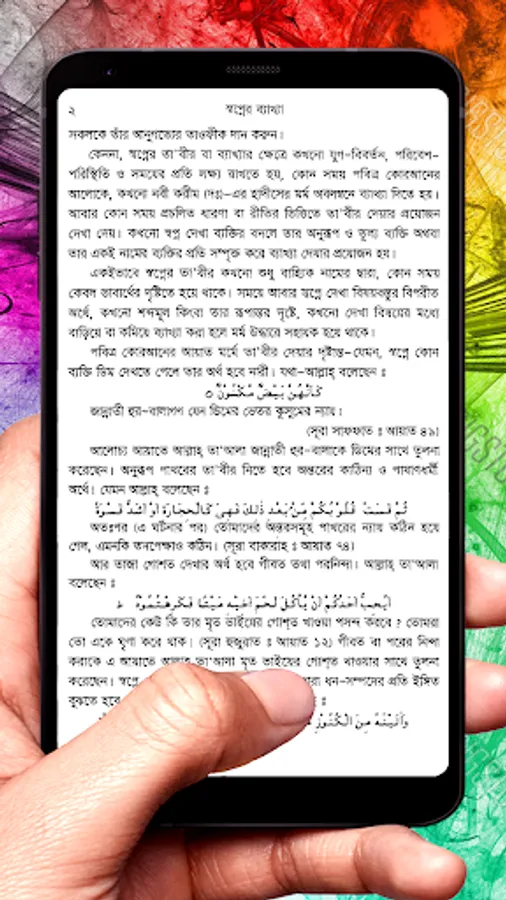 ২ স্বপ্নের ব্যাখ্যা
সকলকে তাঁর আনুগত্যের তাওফীক দান করুন।
কেননা, স্বপ্নের তা'বীর বা ব্যাখ্যার ক্ষেত্রে কখনো যুগ-বিবর্তন, পরিবেশ-
পরিস্থিতি ও সময়ের প্রতি লক্ষ্য রাখতে হয়, কোন সময় পবিত্র কোরআনের
আলোকে, কখনো নবী করীম (দঃ)-এর হাদীসের মর্ম অবলম্বনে ব্যাখ্যা দিতে হয়।
আবার কোন সময় প্রচলিত ধারণা বা রীতির ভিত্তিতে তা'বীর দেয়ার প্রয়োজন
দেখা দেয়। কখনো স্বপ্ন দেখা ব্যক্তির বদলে তার অনুরূপ ও তুল্য ব্যক্তি অথবা
তার একই নামের ব্যক্তির প্রতি সম্পৃক্ত করে ব্যাখ্যা দেয়ার প্রয়োজন হয়।
একইভাবে স্বপ্নের তা'বীর কখনো শুধু বাহ্যিক নামের দ্বারা, কোন সময়
কেবল ভাবার্থের দৃষ্টিতে হয়ে থাকে। সময়ে আবার স্বপ্নে দেখা বিষয়বস্তুর বিপরীত
অর্থে, কখনো শব্দমূল কিংবা তার রূপান্তর দৃষ্টে, কখনো দেখা বিষয়ের মধ্যে
বাড়িয়ে বা কমিয়ে ব্যাখ্যা করা হলে মর্ম উদ্ধারে সহায়ক হয়ে থাকে।
পবিত্র কোরআনের আয়াত মর্মে তা'বীর দেয়ার দৃষ্টান্ত-যেমন, স্বপ্নে কোন
ব্যক্তি ডিম দেখতে পেলে তার অর্থ হবে নারী। যথা-আল্লাহ্ বলেছেন ঃ
كَأَنَّهُنَّ بَيْضٌ مَّكْنُونٌ ٥
জান্নাতী হুর-বালাগণ যেন ডিমের ভেতর কুসুমের ন্যায়।
(সূরা সাফফাত ঃ আয়াত ৪৯)
আলোচ্য আয়াতে আল্লাহ্ তা'আলা জান্নাতী হুর-বালাকে ডিমের সাথে তুলনা
করেছেন। অনুরূপ পাথরের তা'বীর নিতে হবে অন্তরের কাঠিন্য ও পাষাণধর্মী
অর্থে। যেমন আল্লাহ্ বলেছেন ঃ
ثُمَّ قَسَتْ قُلُوبُكُمْ مِّنْ بَعْدِ ذٰلِكَ فَهِيَ كَالْحِجَارَةِ أَوْ أَشَدُّ قَسْوَةً
অতঃপর (এ ঘটনার পর) তোমাদের অন্তরসমূহ পাথরের ন্যায় কঠিন হয়ে
গেল, এমনকি তদপেক্ষাও কঠিন। (সূরা বাকারাহ ঃ আয়াত ৭৪)
আর তাজা গোশত দেখার অর্থ হবে গীবত তথা পরনিন্দা। আল্লাহ্ তা'আলা
বলেছেন ঃ
أَيُحِبُّ أَحَدُكُمْ أَنْ يَّأْكُلَ لَحْمَ أَخِيهِ مَيْتًا فَكَرِهْتُمُوهُ ط
তোমাদের কেউ কি তার মৃত ভাইয়ের গোশ্ত খাওয়া পসন্দ করবে ? তোমরা
তো একে ঘৃণা করে থাক। (সূরা হুজুরাত ঃ আয়াত ১২) গীবত বা পরের নিন্দা
করাকে এ আয়াতে আল্লাহ্ তা'আলা মৃত ভাইয়ের গোশ্ত খাওয়ার সাথে তুলনা
করেছেন। স্বপ্নে ধন-সম্পদের প্রতি ইঙ্গিত
বুঝতে হবে ঃ
وَآتَيْنَاهُ مِنَ الْكُنُوزِ